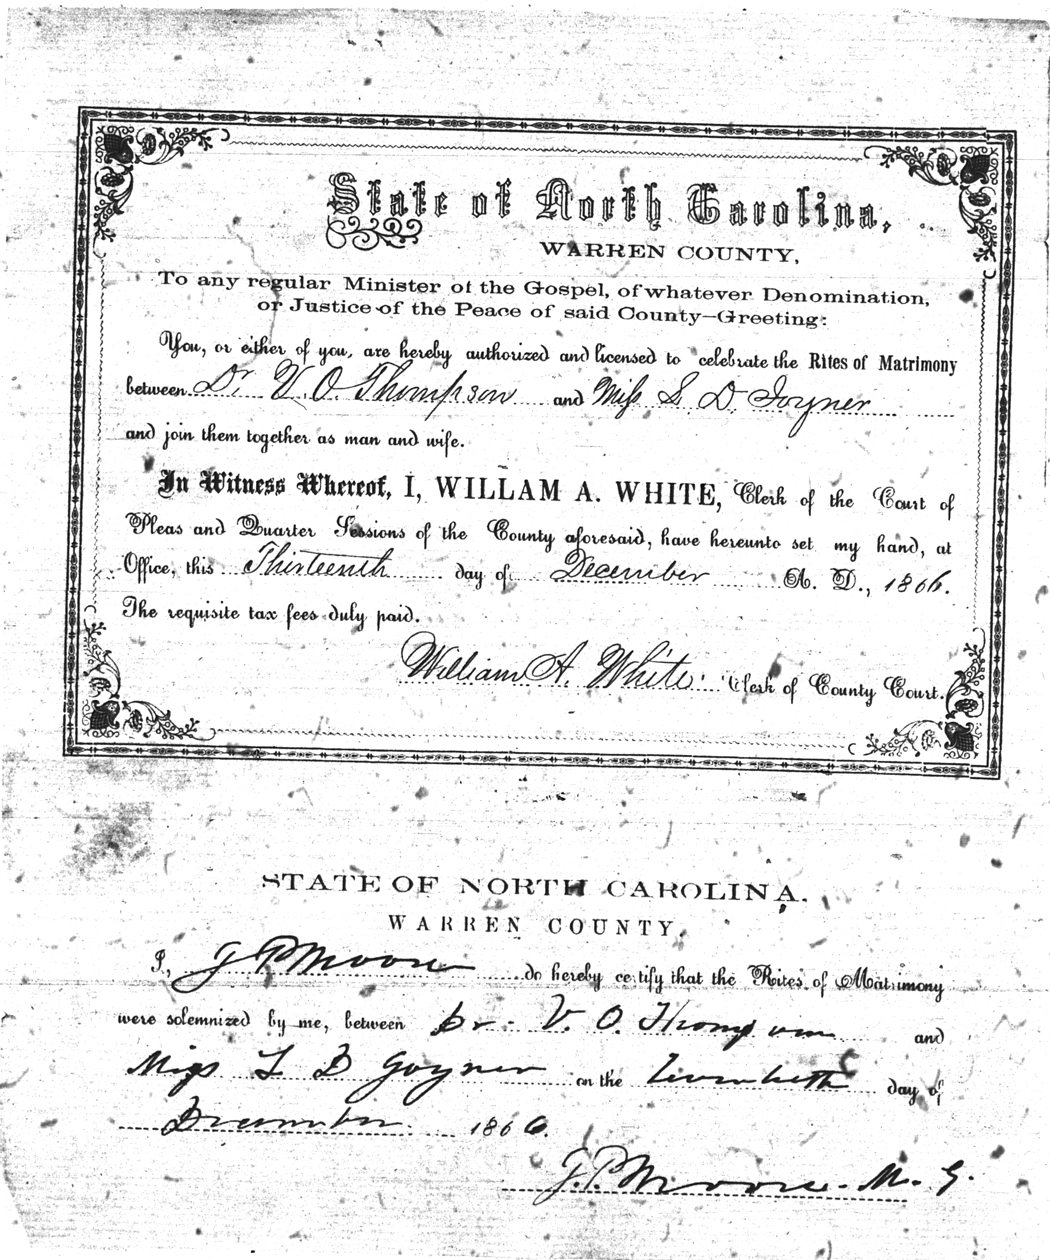 State of North Carolina,
WARREN COUNTY,
To any regular Minister of the Gospel, of whatever Denomination,
or Justice of the Peace of said County—Greeting:
You, or either of you, are hereby authorized and licensed to celebrate the Rites of Matrimony
between Dr. V. O. Thompson and Miss S D. Joyner
and join them together as man and wife.
In Witness Whereof, I, WILLAM A. WHITE, Clerk of the Court of
Pleas and Quarter Sessions of the County aforesaid, have hereunto set my hand, at
Office, this Thirteenth day of December A. D., 1866.
The requisite tax fees duly paid.
William A. White. Clerk of County Court.
STATE OF NORTH CAROLINA.
WARREN COUNTY.
I, J P Moore do hereby certify that the Rites of Matrimony
were solemnized by me, between Dr. V. O. Thompson and
Miss D Joyner on the day of
December 1866.
J. P. Moore. M. G.